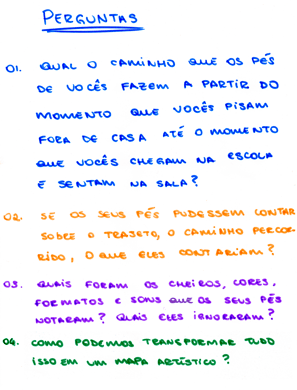 PERGUNTAS
01. QUAL O CAMINHO QUE OS PÉS
DE VOCÊS FAZEM A PARTIR DO
MOMENTO QUE VOCÊS PISAM
FORA DE CASA ATÉ O MOMENTO
QUE VOCÊS CHEGAM NA ESCOLA
E SENTAM NA SALA?
02. SE OS SEUS PÉS PUDESSEM CONTAR
SOBRE O TRAJETO, O CAMINHO PERCOR-
RIDO, O QUE ELES CONTARIAM?
03. QUAIS FORAM OS CHEIROS, CORES,
FORMATOS E SONS QUE OS SEUS PÉS
NOTARAM? QUAIS ELES IGNORARAM?
04. COMO PODEMOS TRANSFORMAR TUDO
ISSO EM UM MAPA ARTÍSTICO?